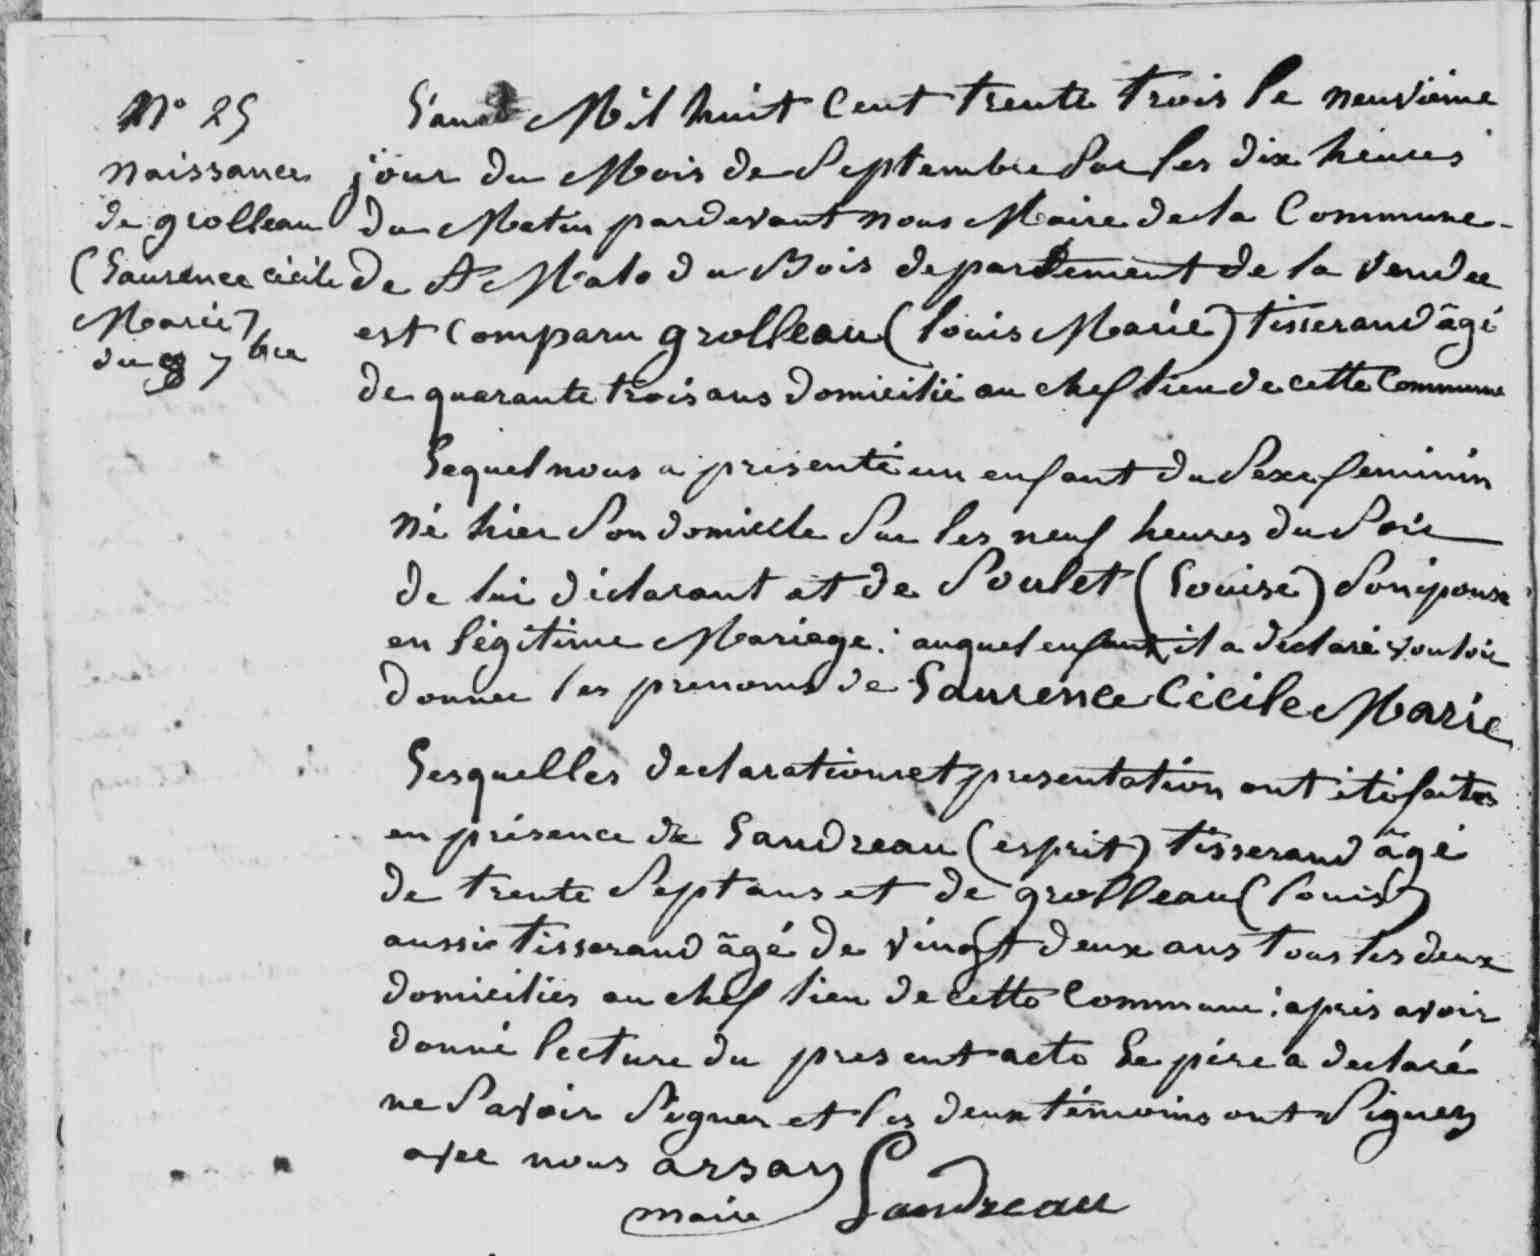 N° 25
naissance
de grolleau
(Laurence cécile
Marie)
du 9 7bre
L'an Mil huit Cent trente trois le neuvième
jour du Mois de Septembre Sur les dix heures
du Matin pardevant nous Maire de la Commune
de St Malo du Bois departement de la Vendee
est Comparu grolleau (louis Marie) tisserand âgé
de quarante trois ans domicilié au chef lieu de cette Commune
Lequel nous a présenté un enfant du Sexe feminin
né hier Son domicile Sur les neuf heures du Soir
de lui déclarant et de Soulet (Louise) Son épouse
en légitime Mariage : auquel enfant il a déclaré vouloir
donner les prenoms de Laurence Cécile Marie
Lesquelles declaration et presentation ont été faites
en présence de Landreau (esprit) tisserand âgé
de trente Sept ans et de grolleau (louis)
aussi tisserand âgé de vingt deux ans tous les deux
domiciliés au chef lieu de cette Commune : après avoir
donné lecture du present acte Le père a declaré
ne Savoir Signer et les deux témoins ont Signez
avec nous
maire Landreau